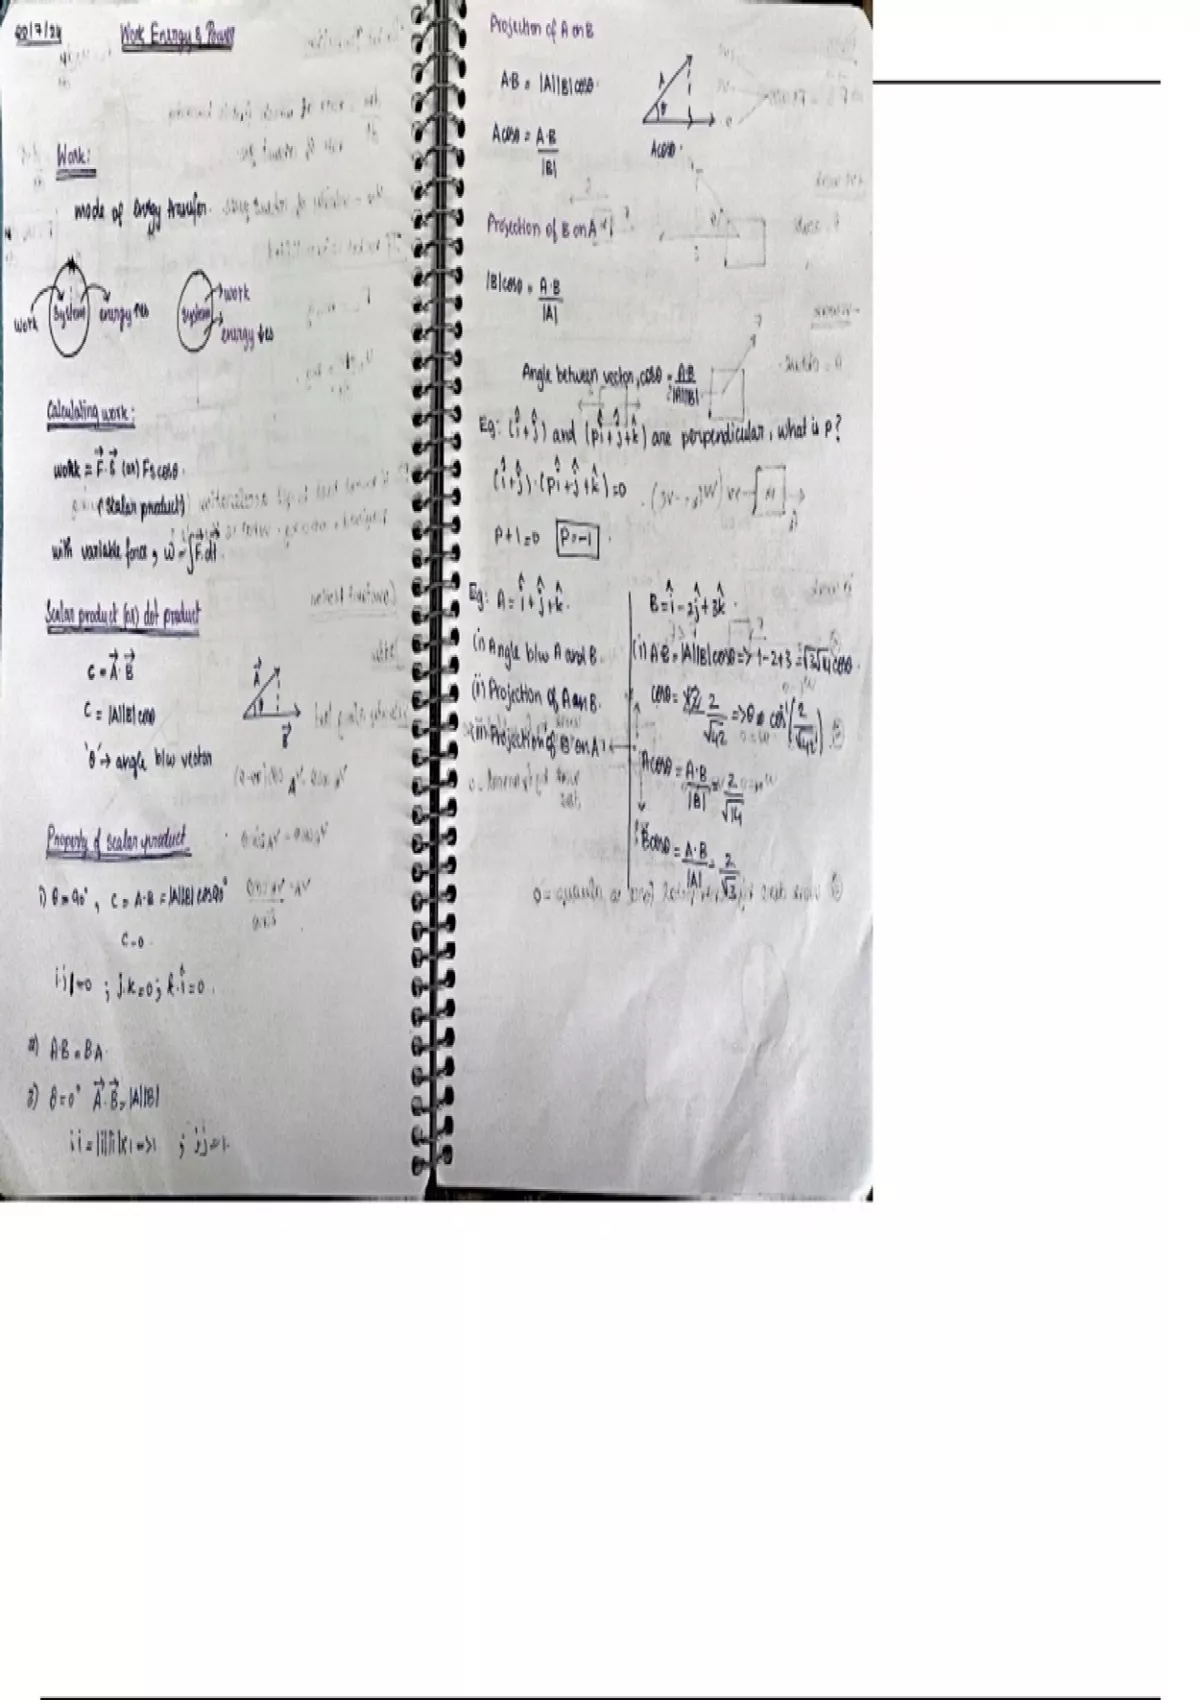 Work Energy & Power
Work:
mode of energy transfer.
work
System
energy ↑es
System
work
energy ↓es
Calculating work:
work = F⃗·S⃗ (or) FScosθ.
(scalar product)
with variable force, W = ∫F⃗.
Scalar product (or) dot product
C = A⃗·B⃗
C = |A||B| cosθ
'θ' → angle b/w vector
A⃗
θ
B⃗
Property of scalar product
1) θ = 90°, C = A·B = |A||B| cos90°
C = 0.
i·j = 0 ; j·k = 0 ; k·î = 0.
2) A·B = B·A.
3) θ = 0° A⃗·B⃗ = |A||B|
Projection of A on B
A·B = |A||B| cosθ.
Acosθ = A·B / |B|
A
θ
Acosθ.
Projection of B on A
|B|cosθ = A·B / |A|
Angle between vector, cosθ = A·B / |A||B|
Eg: (î+ĵ) and (pî+ĵ+k̂) are perpendicular, what is p?
(î+ĵ)·(pî+ĵ+k̂) = 0
P+1=0 P=-1
Eg: A = î+ĵ+k̂. B = î-2ĵ+3k̂.
(i) Angle b/w A and B.
(ii) Projection of A on B.
(iii) Projection of B on A.
(i) A·B = |A||B|cosθ => 1-2+3 = √3√14 cosθ.
cosθ = 2/√42 => θ = cos⁻¹(2/√42)
Acosθ = A·B / |B| = 2/√14
Bcosθ = A·B / |A| = 2/√3